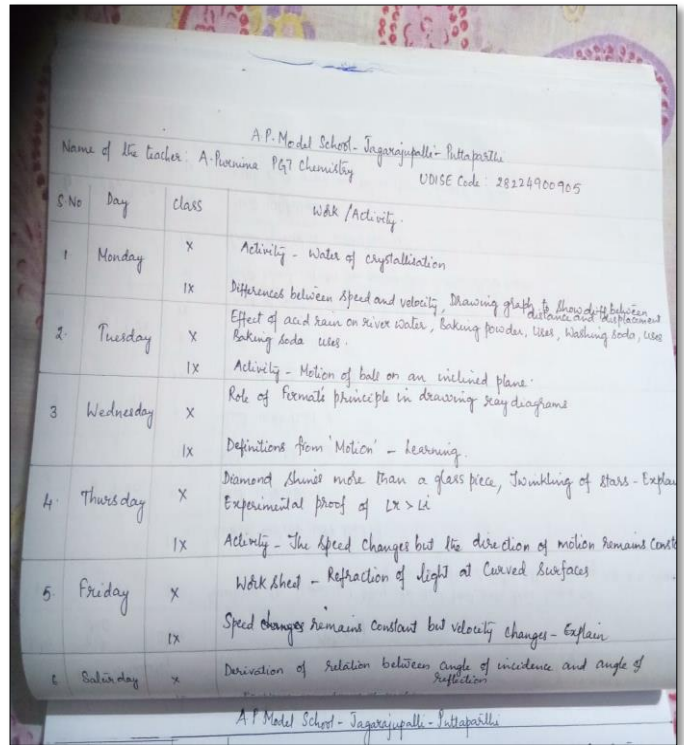 A.P. Model School - Jagarajupalli - Puttaparthi
Name of the teacher: A. Purnima PGT Chemistry UDISE Code: 28224900905
S.No Day Class Work / Activity.
1 Monday X Activity - Water of crystallisation
IX Differences between speed and velocity, Drawing graph to show diff between
distance and displacement
2. Tuesday X Effect of acid rain on river water, Baking powder, Uses, Washing soda, uses
Baking soda uses.
IX Activity - Motion of ball on an inclined plane.
3 Wednesday X Role of Fermat's principle in drawing ray diagrams
IX Definitions from 'Motion' - Learning.
4. Thursday X Diamond shines more than a glass piece, Twinkling of stars - Explai
Experimental proof of ∠r > ∠i
IX Activity - The speed changes but the direction of motion remains const
5. Friday X Work sheet - Refraction of light at Curved Surfaces
IX Speed changes remains constant but velocity changes - Explain
6 Saturday X Derivation of relation between angle of incidence and angle of
reflection
A P Model School - Jagarajupalli - Puttaparthi